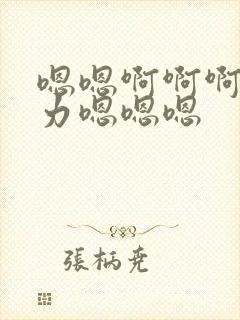 嗯嗯啊啊啊
力嗯嗯嗯
張柄尭